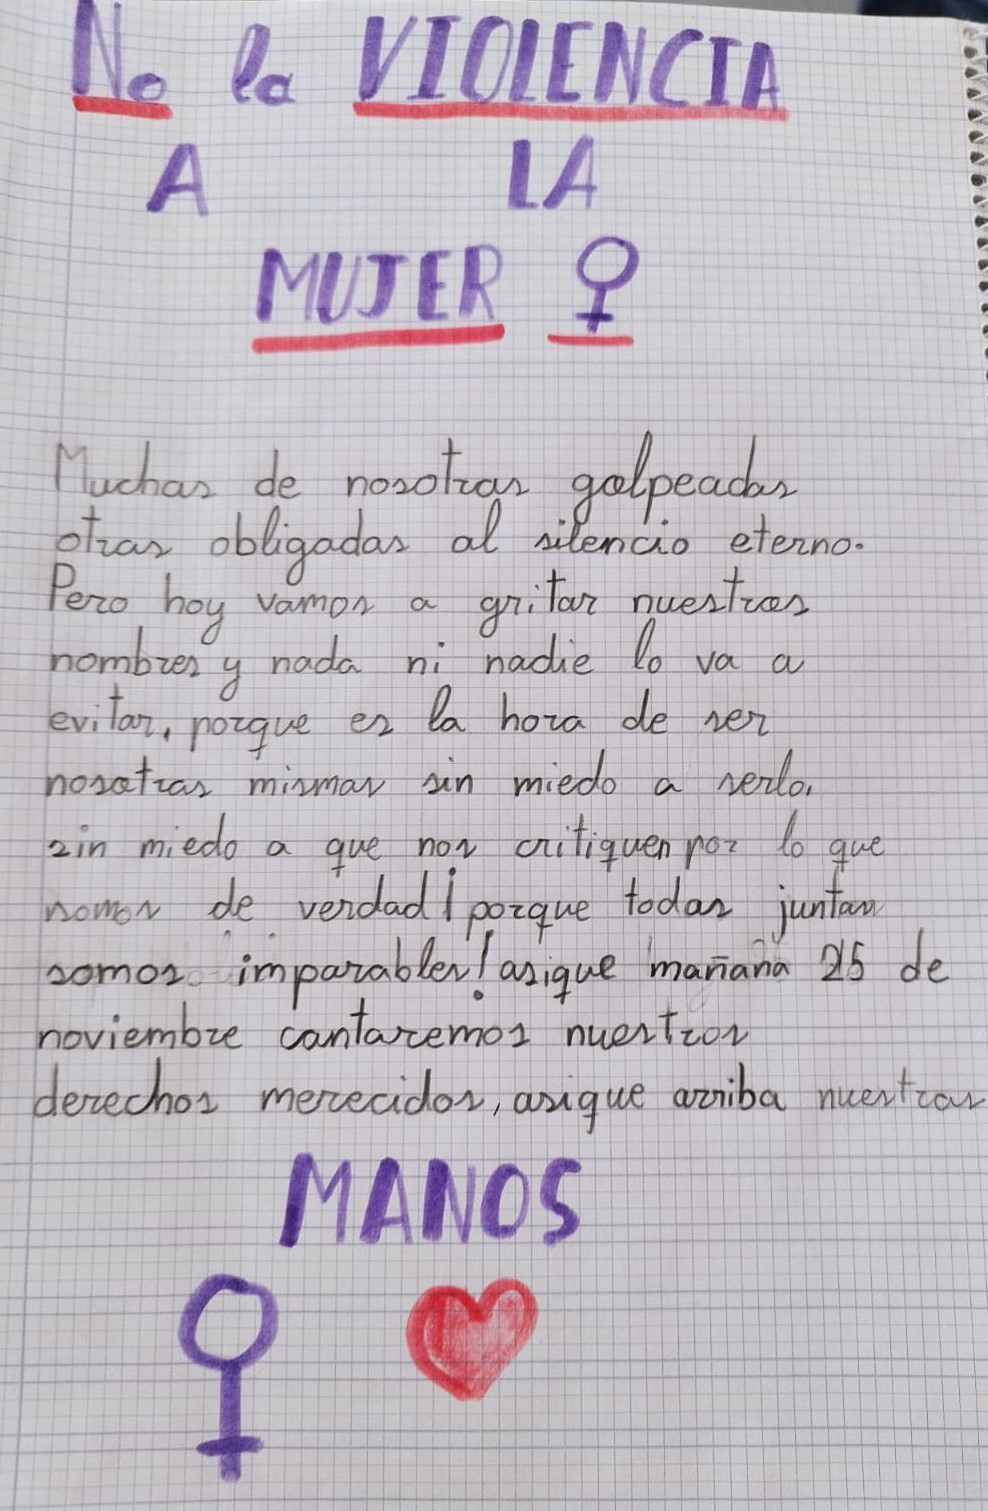 No la VIOLENCIA
A LA
MUJER ♀
Muchas de nosotras golpeadas
otras obligadas al silencio eterno.
Pero hoy vamos a gritar nuestros
nombres y nada ni nadie lo va a
evitar, porque es la hora de ser
nosotras mismas sin miedo a serlo,
sin miedo a que nos critiquen por lo que
somos de verdad ¡porque todas juntas
somos imparables! asique mañana 25 de
noviembre cantaremos nuestros
derechos merecidos, asique arriba nuestras
MANOS